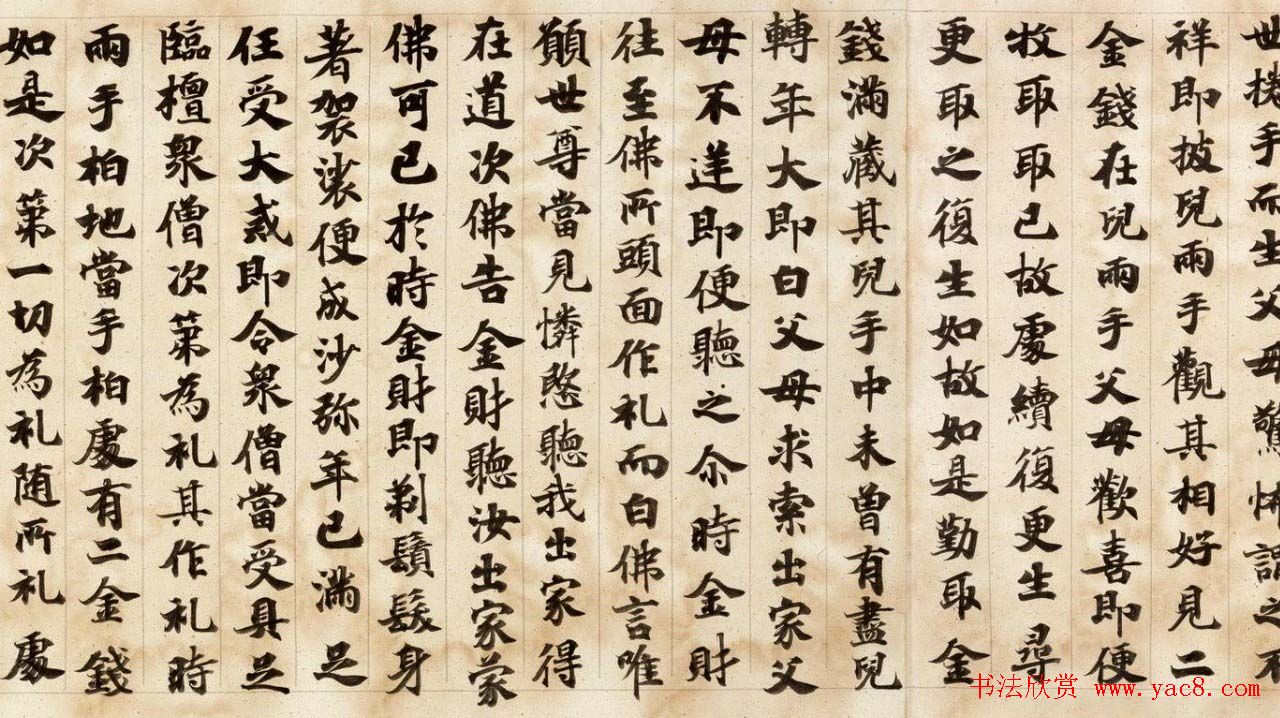 世捲手而生父母驚怪謂之不
祥即披兒兩手觀其相好見二
金錢在兒兩手父母歡喜即便
牧取取已故處續復更生尋
更取之復生如故如是勤取金
錢滿藏其兒手中未曾有盡兒
轉年大即白父母求索出家父
母不逆即便聽之尒時金財
往至佛所頭面作礼而白佛言唯
願世尊當見憐愍聽我出家得
在道次佛告金財聽汝出家蒙
佛可已於時金財即剃鬚髮身
著袈裟便成沙弥年已滿足
任受大戒即令衆僧當受具足
臨檀衆僧次苐為礼其作礼時
兩手柏地當手柏處有二金錢
如是次苐一切為礼随所礼處
书法欣赏 www.yac8.com